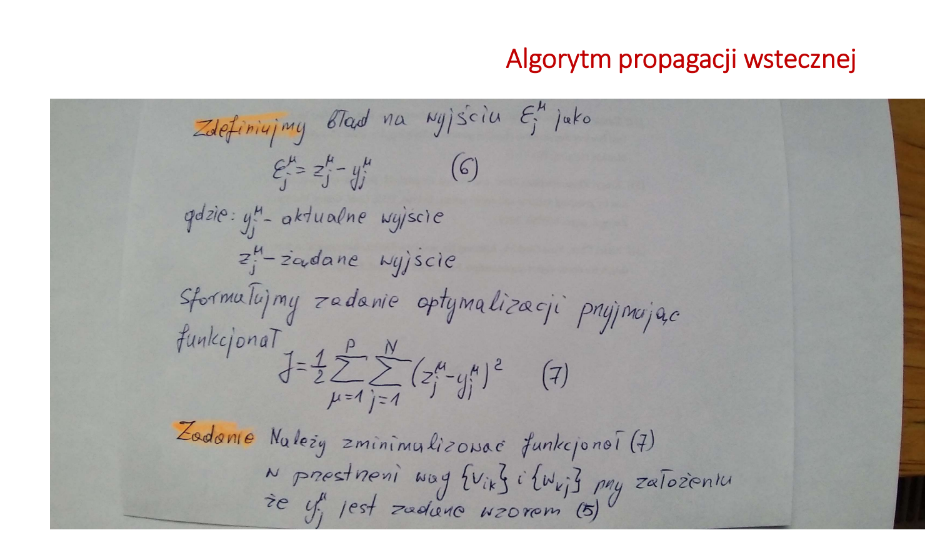 Algorytm propagacji wstecznej
Zdefiniujmy błąd na wyjściu ε_j^μ jako
ε_j^μ = z_j^μ - y_j^μ (6)
gdzie: y_j^μ - aktualne wyjscie
z_j^μ - żądane wyjście
Sformułujmy zadanie optymalizacji przyjmując
funkcjonał
J = 1/2 ∑_{μ=1}^{P} ∑_{j=1}^{N} (z_j^μ - y_j^μ)^2 (7)
Zadanie Należy zminimalizować funkcjonał (7)
w przestrzeni wag {v_ik} i {w_kj} przy założeniu
że y_j^μ jest zadane wzorem (5)